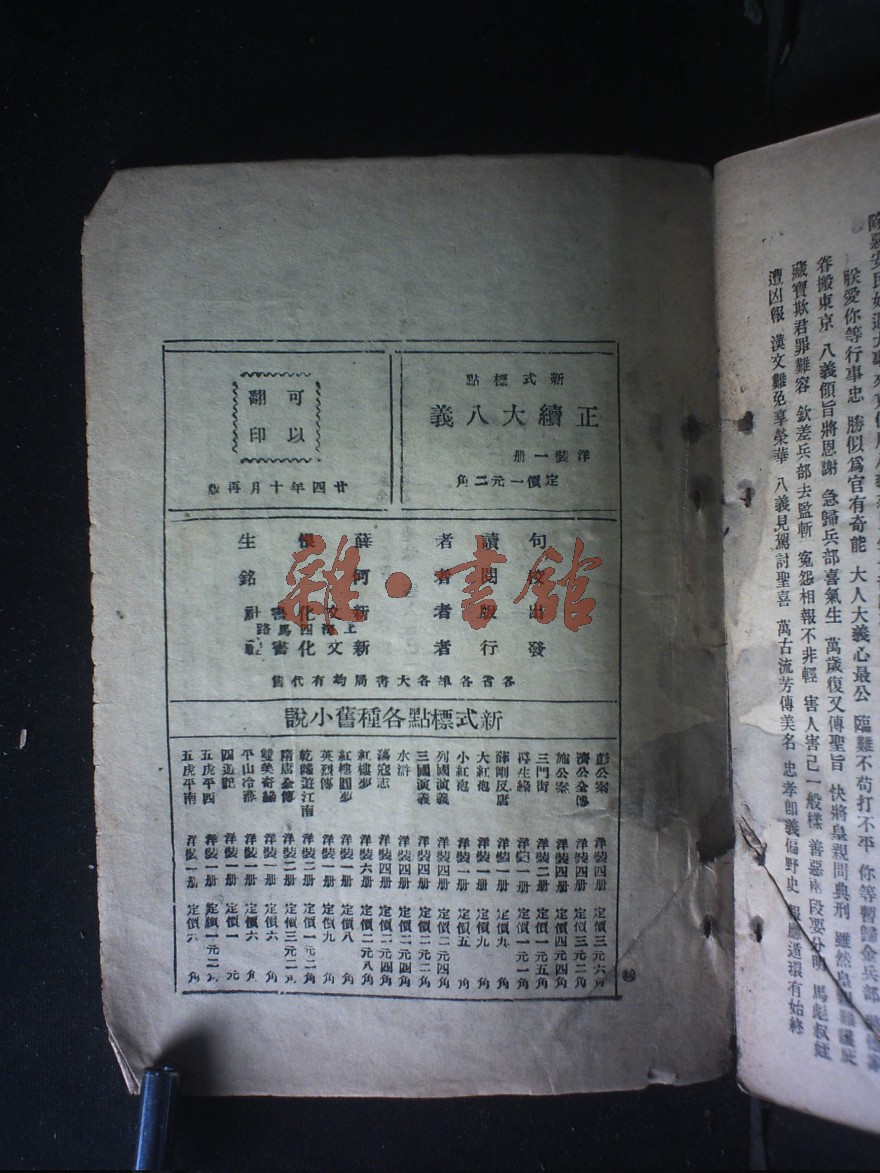 新式標點
正續大八義
洋裝一册
定價一元二角
可以
翻印
廿四年十月再版
句讀者 薛恨生
校閱者 何銘
出版者 新文化書社
上海四馬路
發行者 新文化書社
各省各埠各大書局均有代售
雜·書館
新式標點各種舊小說
彭公案 洋裝四册 定價三元六角
濟公全傳 洋裝四册 定價三元二角
施公案 洋裝四册 定價四元四角
三門街 洋裝二册 定價一元五角
再生緣 洋裝一册 定價一元一角
薛剛反唐 洋裝一册 定價九角
大紅袍 洋裝一册 定價九角
小紅袍 洋裝一册 定價五角
列國演義 洋裝四册 定價二元四角
三國演義 洋裝四册 定價二元二角
水滸 洋裝四册 定價二元四角
蕩寇志 洋裝四册 定價二元四角
紅樓夢 洋裝六册 定價二元八角
紅樓圓夢 洋裝一册 定價八角
英烈傳 洋裝一册 定價九角
乾隆遊江南 洋裝二册 定價一元二角
隋唐全傳 洋裝二册 定價三元二角
雙美奇緣 洋裝一册 定價六角
平山冷燕 洋裝一册 定價六角
四遊記 洋裝一册 定價一元
五虎平西 洋裝一册 定價一元二角
五虎平南 洋裝一册 定價六角
朕愛你等行事忠 勝似爲官有奇能 大人大義心最公 臨難不苟打不平 你等暫歸金兵部
眷搬東京 八義領旨將恩謝 急歸兵部喜氣生 萬歲復又傳聖旨 快將皇親問典刑 雖然
藏寶欺君罪難容 欽差兵部去監斬 寃怨相報不非輕 害人害己一般樣 善惡兩段要分明 馬彪叔姪
遭凶報 漢文難免享榮華 八義見駕討聖喜 萬古流芳傳美名 忠孝節義偏野史 報應循環有始終